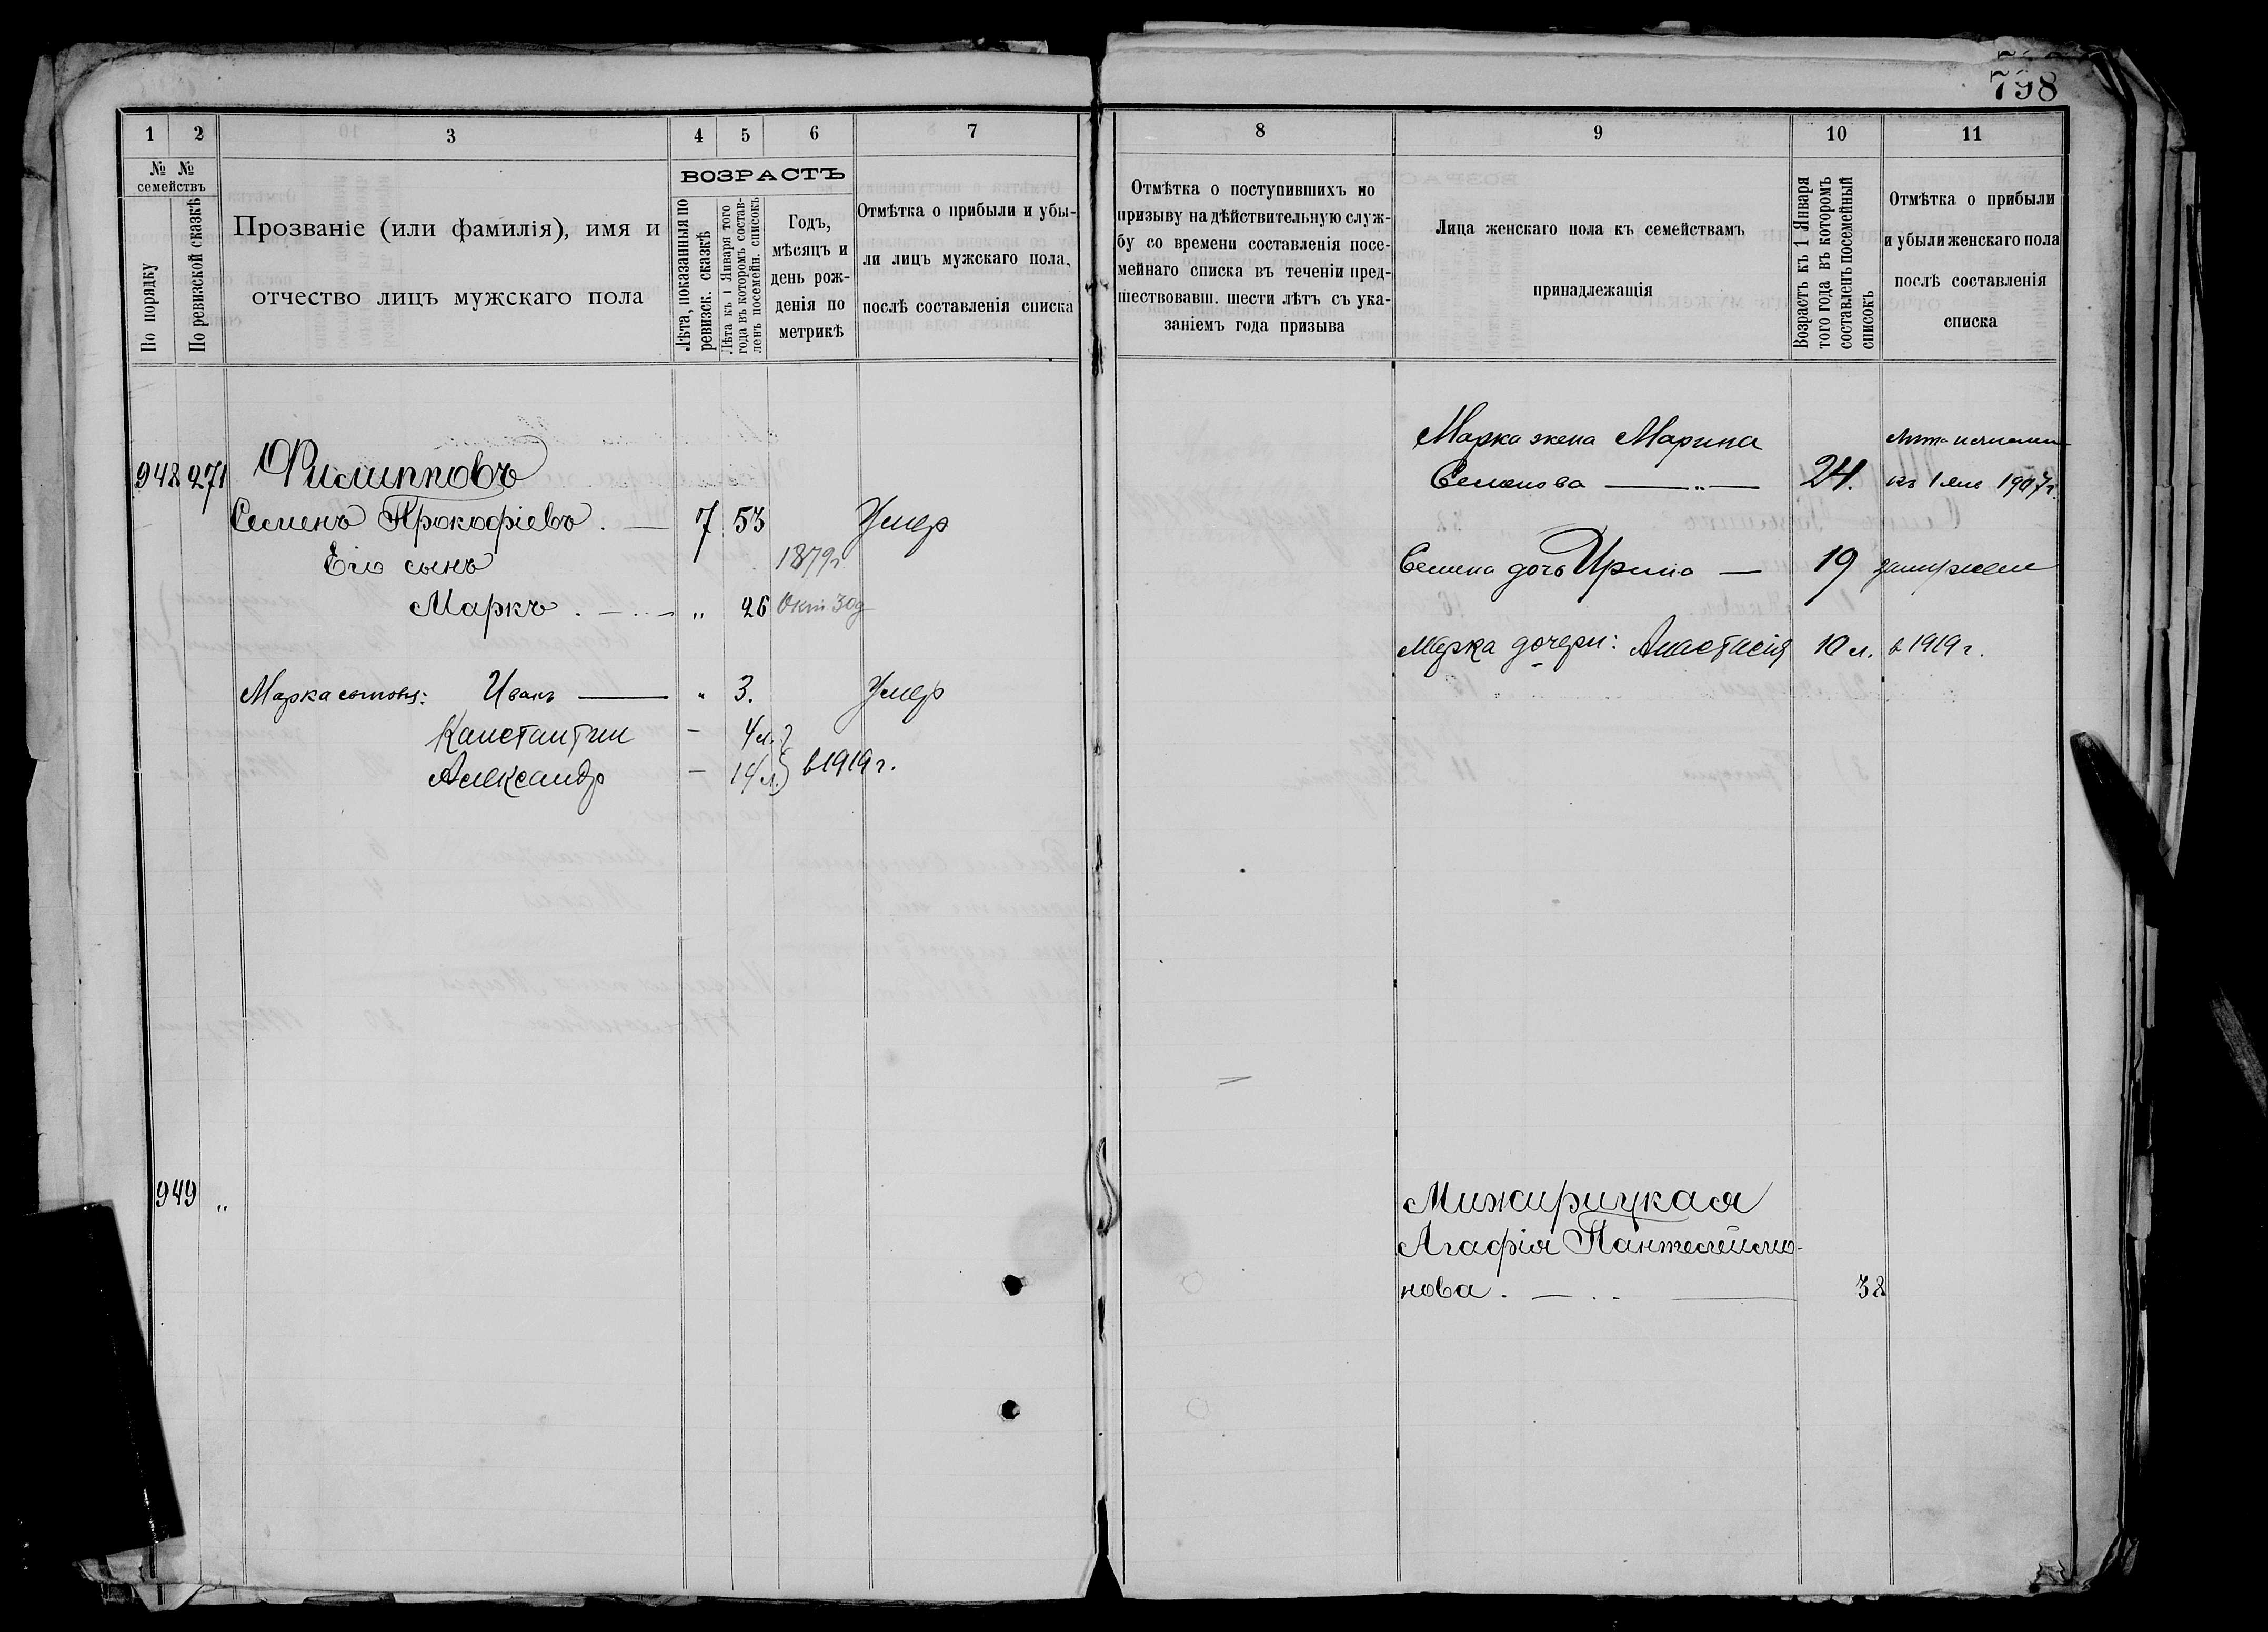 798
1 2 3 4 5 6 7
№ № семействъ
По порядку
По ревизской сказкѣ
Прозваніе (или фамилія), имя и
отчество лицъ мужскаго пола
ВОЗРАСТЪ
Лѣта, показанныя по
ревизск. сказкѣ
Лѣта къ 1 Января того
года въ которомъ состав-
ленъ посемейн. списокъ
Годъ,
мѣсяцъ и
день рож-
денія по
метрикѣ
Отмѣтка о прибыли и убы-
ли лицъ мужскаго пола,
послѣ составленія списка
948 271 Филипповъ
Семенъ Прокофіевъ . — 7 53 Умер
Его сынъ 1879г
Маркъ . — .. — „ 26 Окт 30д
Марка сыновя: Иванъ — „ 3. Умер
Канстантин — 4 л.
Александр — 14 л. в 1919 г.
949 „
8 9 10 11
Отмѣтка о поступившихъ по
призыву на дѣйствительную служ-
бу со времени составленія посе-
мейнаго списка въ теченіи пред-
шествовавш. шести лѣтъ съ ука-
заніемъ года призыва
Лица женскаго пола къ семействамъ
принадлежащія
Возрастъ къ 1 Января
того года въ которомъ
составленъ посемейный
списокъ
Отмѣтка о прибыли
и убыли женскаго пола
послѣ составленія
списка
Марка жена Марина
Семенова — „ — 24. къ 1 янв 1907 г.
Семена дочь Ирина — 19 замужем
Марка дочери: Анастасія 10 л. в 1919 г.
Мижирицкая
Агафія Пантелеймо-
нова . — . . — 38